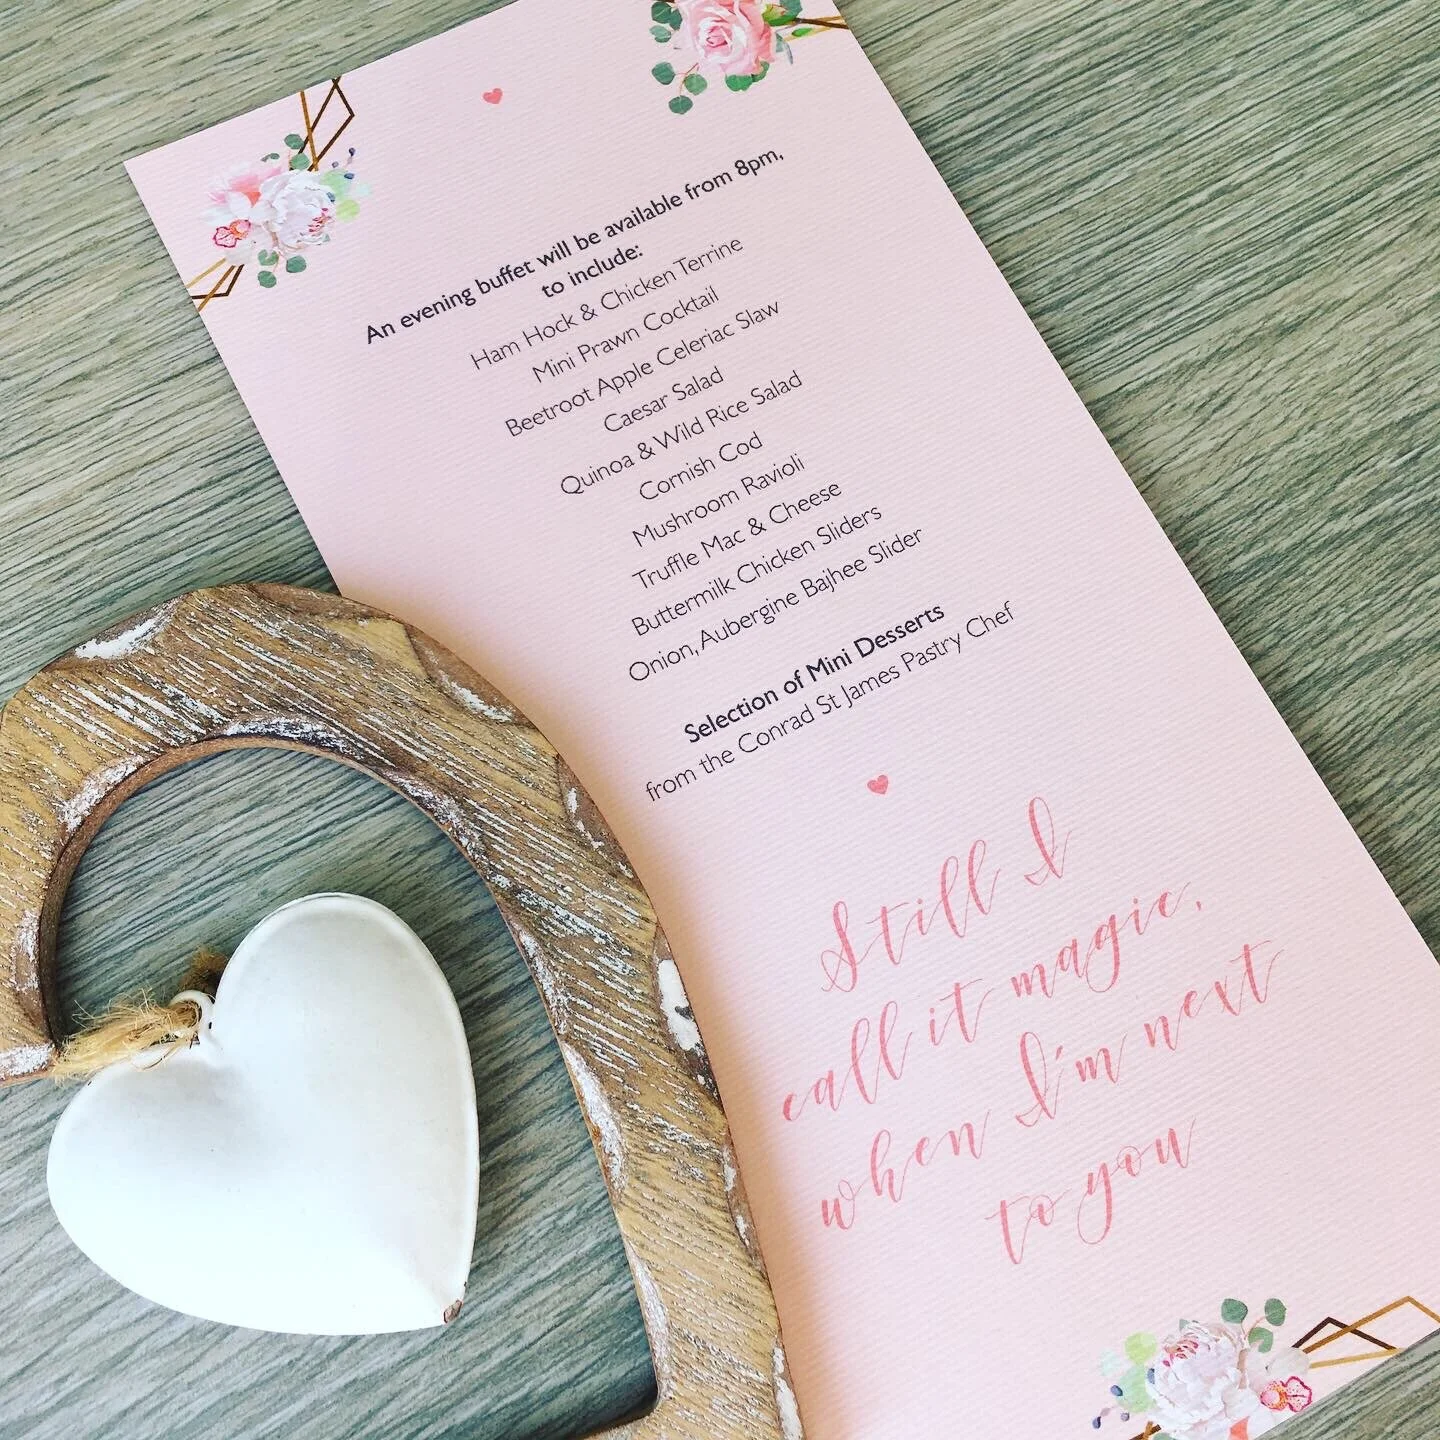 An evening buffet will be available from 8pm,
to include:
Ham Hock & Chicken Terrine
Mini Prawn Cocktail
Beetroot Apple Celeriac Slaw
Caesar Salad
Quinoa & Wild Rice Salad
Cornish Cod
Mushroom Ravioli
Truffle Mac & Cheese
Buttermilk Chicken Sliders
Onion, Aubergine Bajhee Slider
Selection of Mini Desserts
from the Conrad St James Pastry Chef
Still I
call it magic,
when I'm next
to you